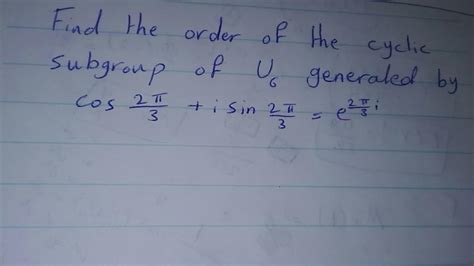 Find the order of the cyclic
subgroup of U₆ generated by
cos 2π/3 + i sin 2π/3 = e^(2π/3 i)